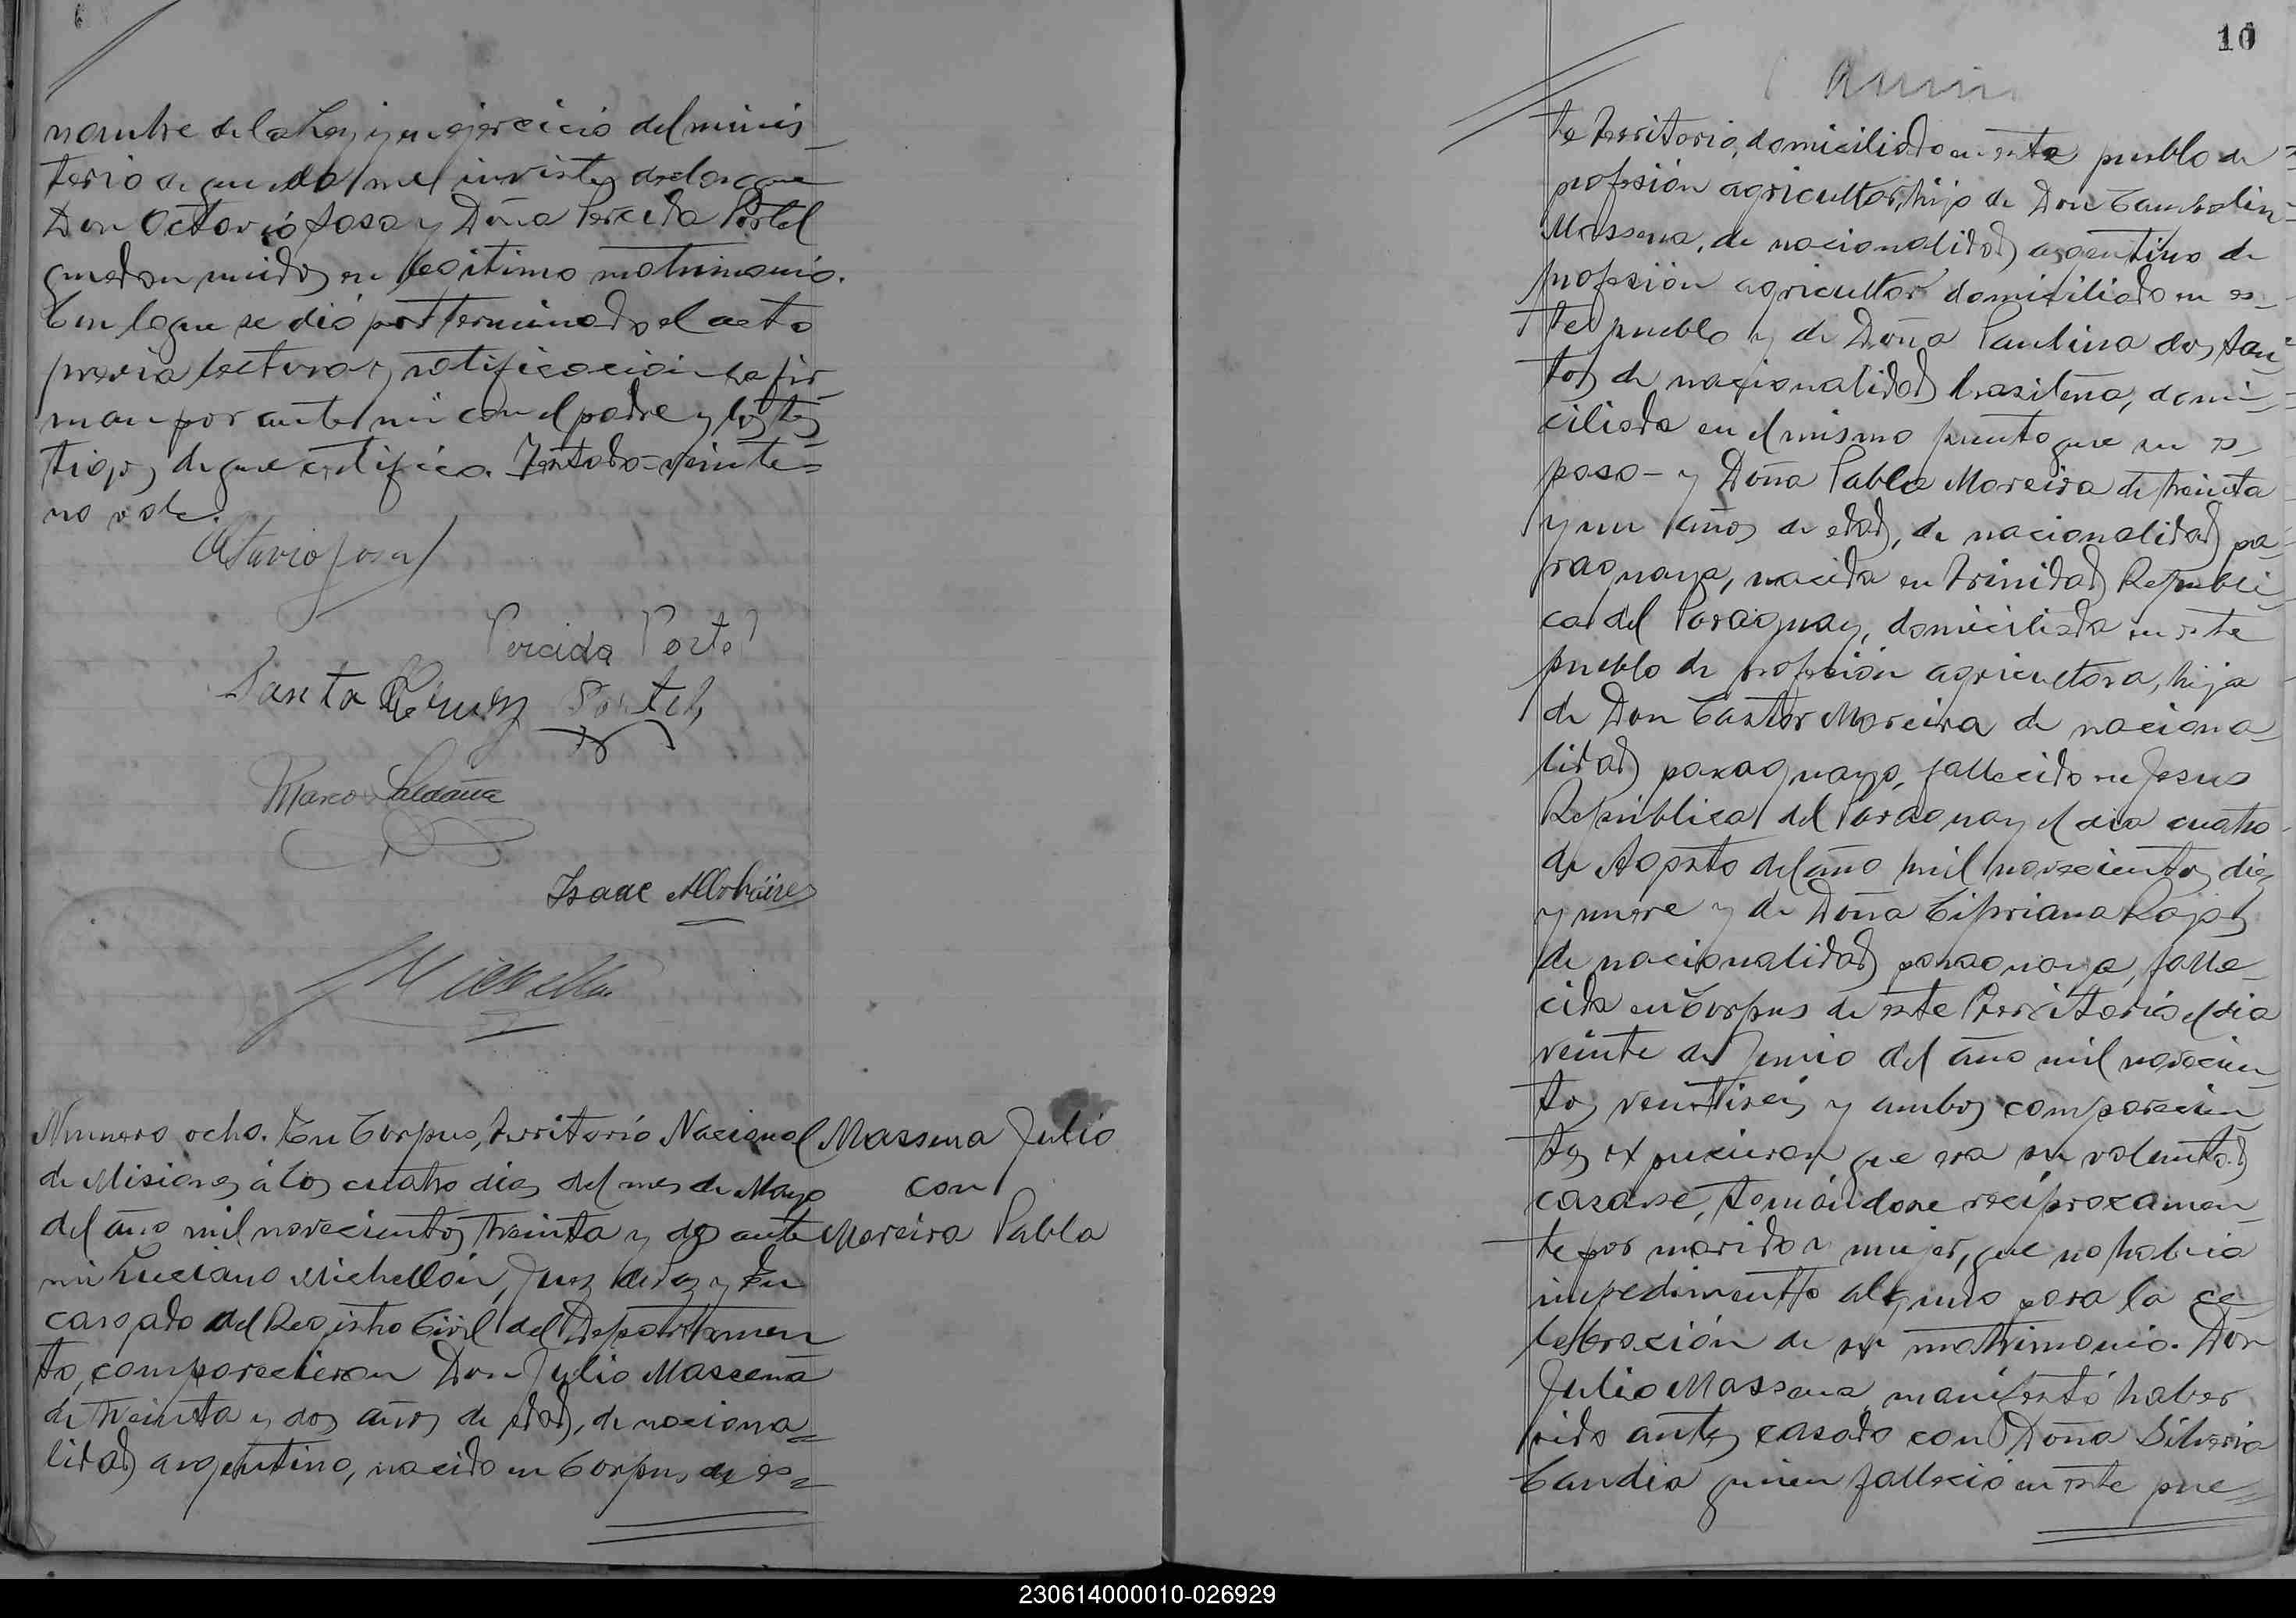 nombre de la Ley y en ejercicio del minis-
terio de que ella me inviste declaro que
Don Octavio Sosa y Doña Percida Portel
quedan unidos en legitimo matrimonio.
Con lo que se dió por terminado el acto
previa lectura y ratificación la fir-
man por ante mi con el padre y los tes-
tigos de que certifico. Testado=veinte=
no vale.
Octavio Sosa
Percida Portel
Santa Portel
Marcos Saldaña
Isaac
Numero ocho. En Corpus, territorio Nacional
de Misiones á los cuatro dias del mes de Mayo
del año mil novecientos treinta y dos ante
mi Luciano Michellón, Juez de Paz y En
cargado del Registro Civil del Departamen
to, comparecieron Don Julio Massena
de treinta y dos años de edad, de naciona=
lidad argentino, nacido en Corpus de es=
Massena Julio
con
Moreira Pabla
10
te territorio, domiciliado en este pueblo de
profesión agricultor, hijo de Don
Massena, de nacionalidad argentino de
profesión agricultor domiciliado en es-
te pueblo y de Doña Paulina dos San-
tos de nacionalidad brasileña, domi-
ciliada en el mismo punto que su es-
poso- y Doña Pabla Moreira de treinta
y un años de edad, de nacionalidad pa-
raguaya, nacida en Trinidad Republi-
ca del Paraguay, domiciliada en este
pueblo de profesión agricultora, hija
de Don Castor Moreira de naciona-
lidad paraguayo, fallecido en Jesus
República del Paraguay el dia cuatro
de Agosto del año mil novecientos diez
y nueve y de Doña Cipriana Rojas
de nacionalidad paraguaya, falle-
cida en Corpus de este Territorio el dia
veinte de Junio del año mil novecien-
tos veintiseis y ambos comparecien-
tes expusieron que era su voluntad
casarse, tomándose recíprocamen-
te por marido y mujer, que no habia
impedimento alguno para la ce-
lebración de su matrimonio. Don
Julio Massena manifestó haber
sido antes casado con Doña Silveria
Candia quien falleció en este pue=
230614000010-026929